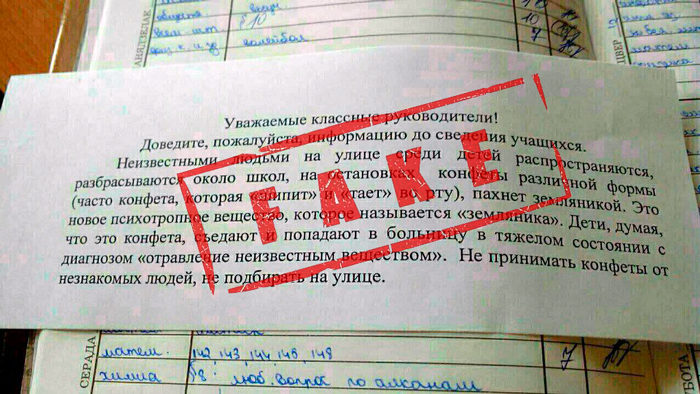 §10
10
волейбол
7
Уважаемые классные руководители!
Доведите, пожалуйста, информацию до сведения учащихся.
Неизвестными людьми на улице среди детей распространяются,
разбрасываются около школ, на остановках конфеты различной формы
(часто конфета, которая «шипит» и «тает» во рту), пахнет земляникой. Это
новое психотропное вещество, которое называется «земляника». Дети, думая,
что это конфета, съедают и попадают в больницу в тяжелом состоянии с
диагнозом «отравление неизвестным веществом». Не принимать конфеты от
незнакомых людей, не подбирать на улице.
FAKE
СЕРАДА
матем. 142, 143, 144, 148 7
химия §8: люб. вопрос по алканам
БОТА